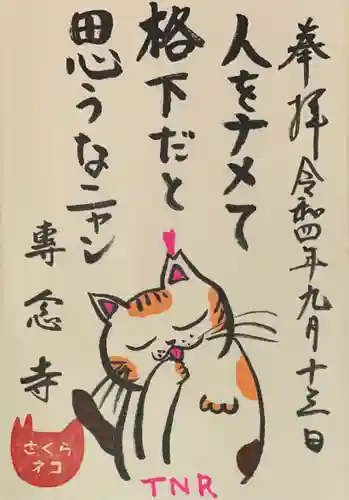 奉拝 令和四年九月十三日
人をナメて
格下だと
思うなニャン
專念寺
さくら
ネコ
TNR